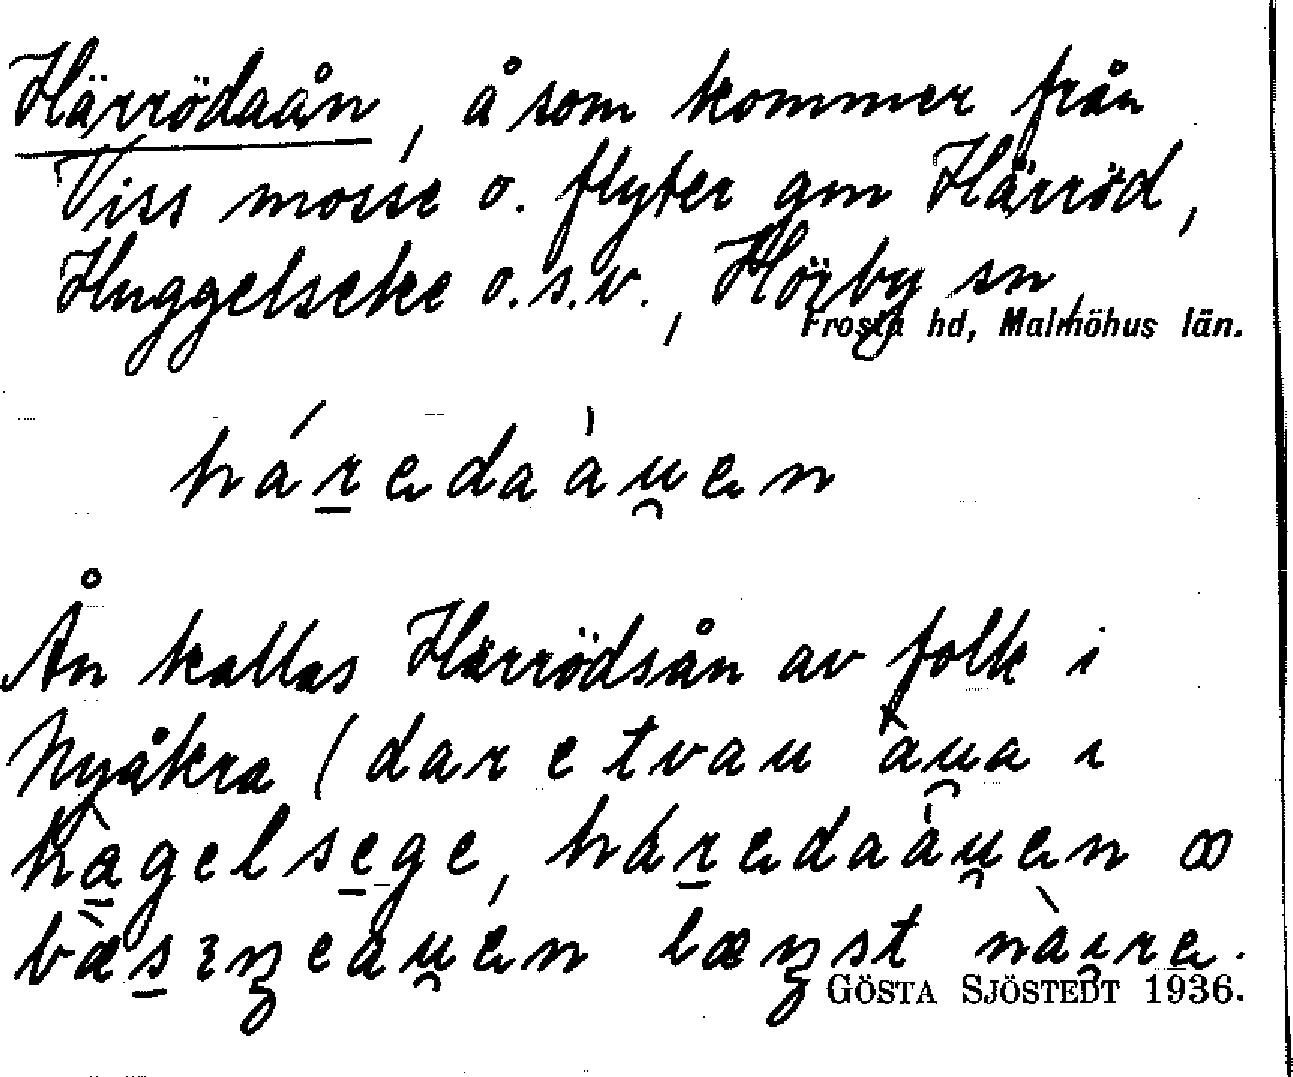 Härrödaån, å som kommer från
Viss mosse o. flyter gm Härröd,
Huggelseke o.s.v., Höjby sn,
Frosta hd, Malmöhus län.
háredaàu̯en
Ån kallas Härrödsån av folk i
Nyåkra (dar e tvau àu̯a i
hàgelsege, háredaàu̯en ꝏ
bæ̀sıŋeàu̯en læŋst nàı̯re.
GÖSTA SJÖSTEDT 1936.